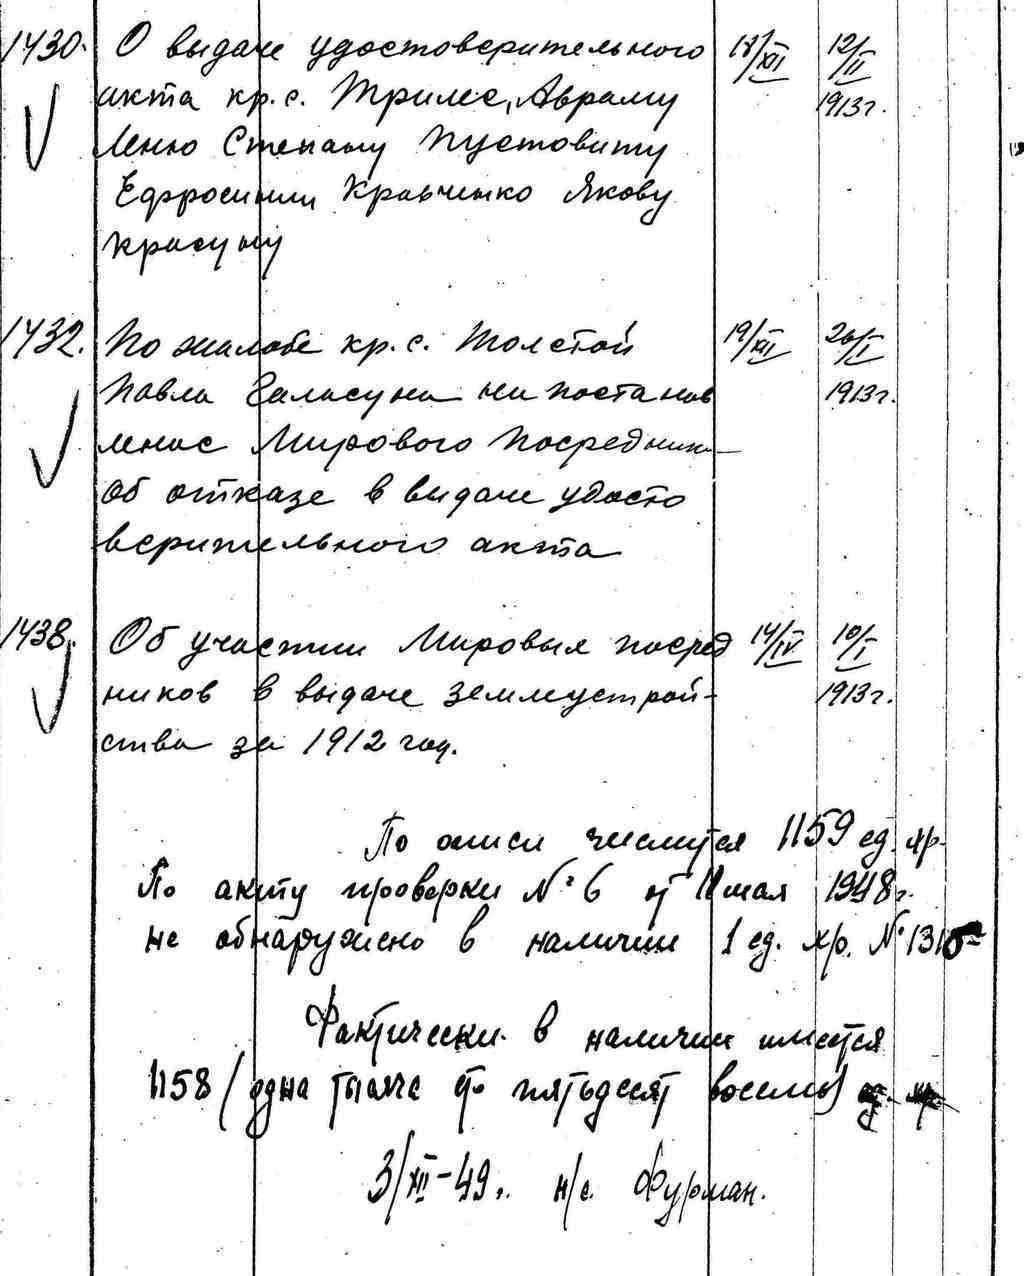 1430. О выдаче удостоверительного 18/XII 12/II
акта кр. с. Трилес, Авраму 1913г.
Меню Степану Пустовиту
Ефросинии Кравченко Якову
Красуну
1432. По жалобе кр. с. Толстой 19/XII 26/I
Павла Галасуна на постанов 1913г.
ление Мирового Посредника
об отказе в выдаче удосто
верительного акта
1438. Об участии Мировых посред 14/IV 10/I
ников в выдаче землеустрой- 1913г.
ства за 1912 год.
По описи числится 1159 ед. хр.
По акту проверки № 6 от 11 мая 1948г.
не обнаружено в наличии 1 ед. хр. №
Фактически в наличии имеется
1158 (одна тысяча сто пятьдесят восемь) ед. хр.
3/XII-49г. н/с. Фурман.